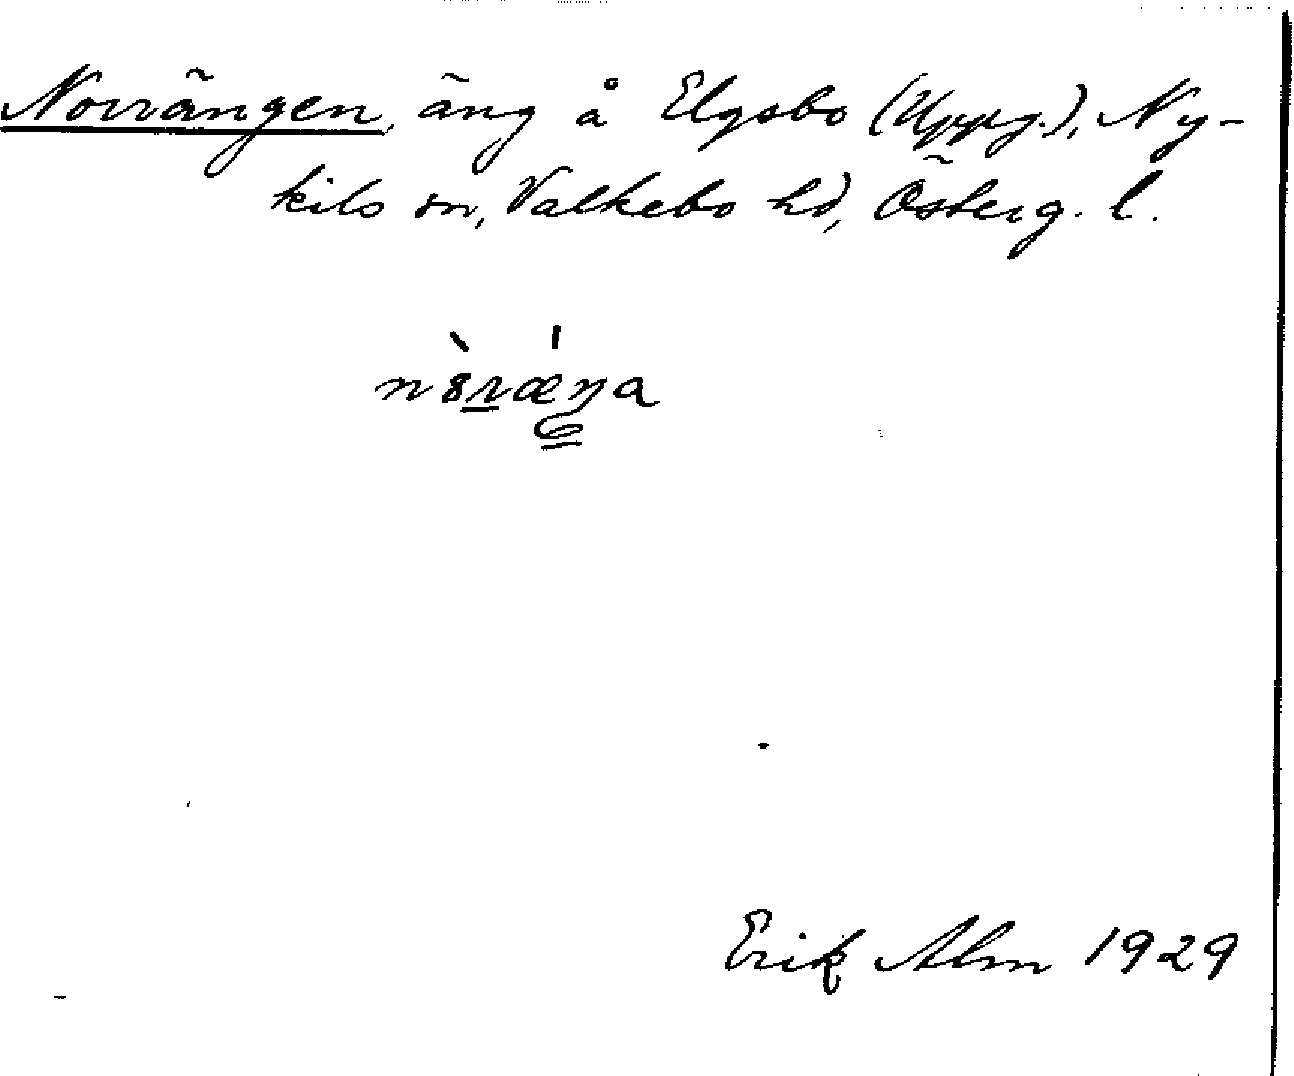 Norrängen, äng å Elgsbo (Uppg.), Ny-
kils sn, Valkebo hd, Österg. l.
n8̀rǽŋa
Erik Alm 1929